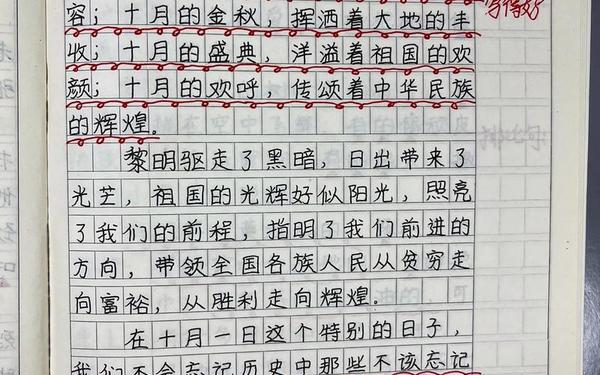 容；十月的金秋，挥洒着大地的丰
收；十月的盛典，洋溢着祖国的欢
颜；十月的欢呼，传颂着中华民族
的辉煌。
黎明驱走了黑暗，日出带来了
光芒，祖国的光辉好似阳光，照亮
了我们的前程，指明了我们前进的
方向，带领全国各族人民从贫穷走
向富裕，从胜利走向辉煌。
在十月一日这个特别的日子，
我们不会忘记历史中那些不该忘记
写得好